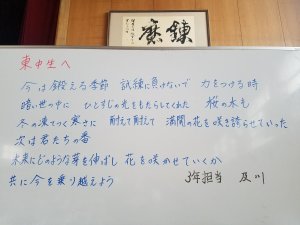 錬磨
東中生へ
今は鍛える季節 試練に負けないで 力をつける時
暗い世の中に ひとすじの光をもたらしてくれた 桜の木も
冬の凍てつく寒さに 耐えて耐えて 満開の花を咲き誇らせていった
次は君たちの番
未来にどのような芽を伸ばし 花を咲かせていくか
共に今を乗り越えよう 3年担当 及川